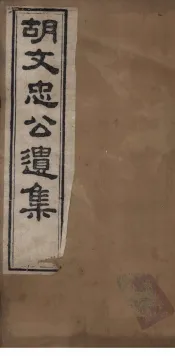 胡文忠公遺集